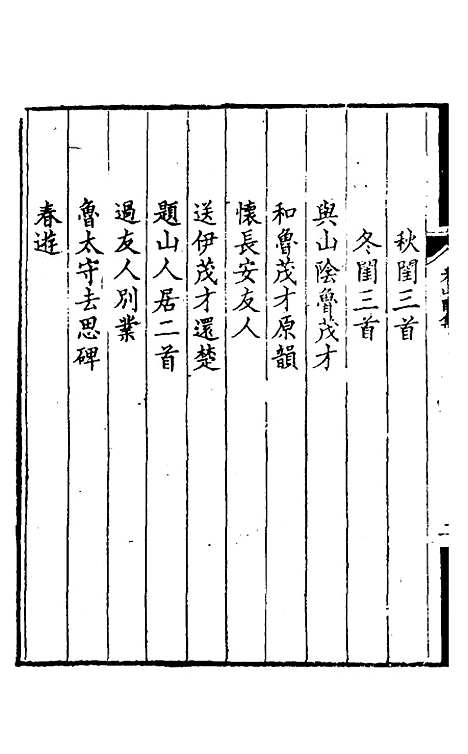 秋閨三首
冬閨三首
與山陰魯茂才
和魯茂才原韻
懷長安友人
送伊茂才還楚
題山人居二首
過友人別業
魯太守去思碑
春遊